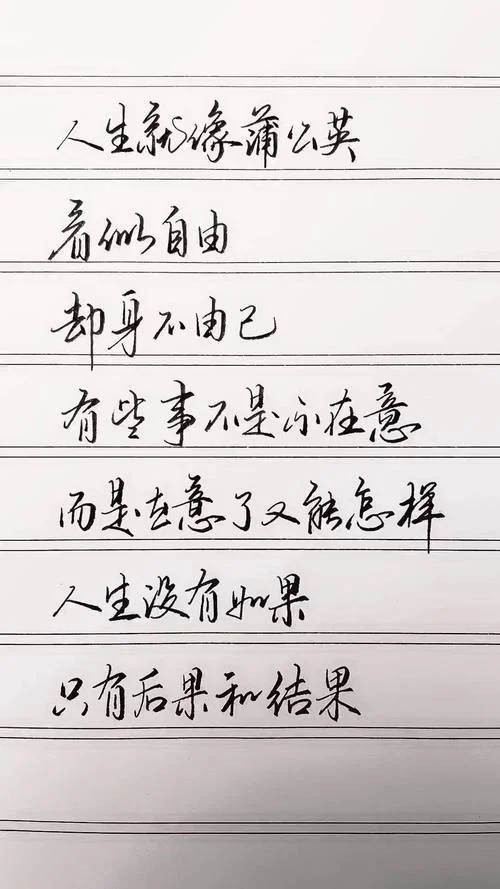 人生就像蒲公英
看似自由
却身不由己
有些事不是不在意
而是在意了又能怎样
人生没有如果
只有后果和结果